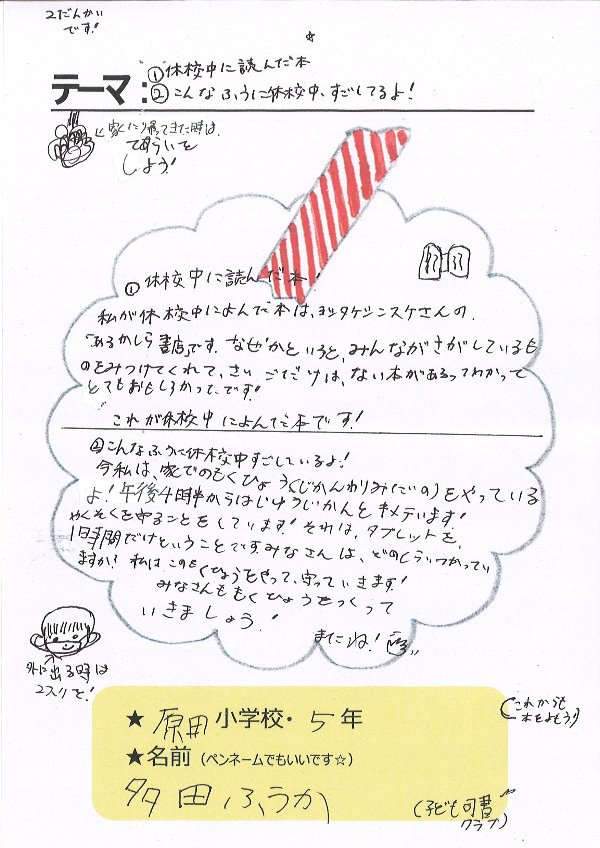 2だんかい
です!
テーマ:①休校中に読んだ本
②こんなふうに休校中、すごしてるよ!
家に帰ってきた時は、
てあらいを
しよう!
①休校中に読んだ本!
私が休校中によんだ本は、ヨシタケシンスケさんの、
「あるかしら書店」です。なぜかというと、みんながさがしているも
のをみつけてくれて、さいごだけは、ない本があるってわかって
とてもおもしろかったです!
これが休校中によんだ本です!
②こんなふうに休校中すごしているよ!
今私は、家でのもくひょう(じかんわりみたいの)をやっている
よ!午後4時半からはじゆうじかんとキメています!
やくそくを守ることをしています!それは、タブレットを、
1日1時間だけということですみなさんは、どのくらいつかってい
ますか?私はこのもくひょうをやって、守っていきます!
みなさんももくひょうをつくって
いきましょう!
またね!
外に出る時は
マスクを!
これからも
本をよもう!
★原田小学校・5年
★名前(ペンネームでもいいです☆)
多田ふうか
(子ども司書
クラブ)